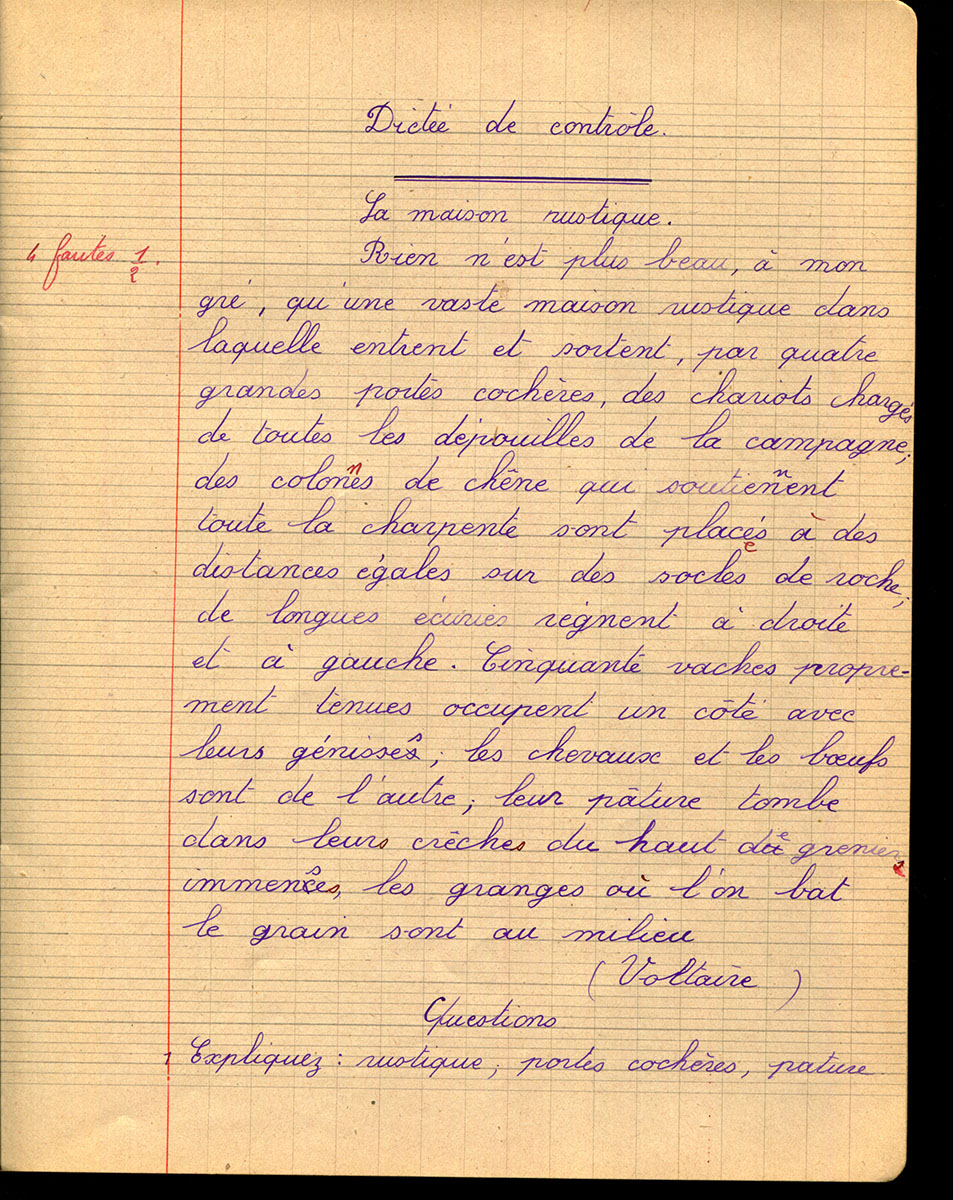 Dictée de contrôle.
La maison rustique.
4 fautes 1/2.
Rien n'est plus beau, à mon
gré, qu'une vaste maison rustique dans
laquelle entrent et sortent, par quatre
grandes portes cochères, des chariots chargés
de toutes les dépouilles de la campagne;
des colonnes de chêne qui soutiennent
toute la charpente sont placées à des
distances égales sur des socles de roche;
de longues écuries règnent à droite
et à gauche. Cinquante vaches propre-
ment tenues occupent un côté avec
leurs génisses; les chevaux et les bœufs
sont de l'autre; leur pâture tombe
dans leurs crèches du haut de greniers
immenses, les granges où l'on bat
le grain sont au milieu
(Voltaire)
Questions
1 Expliquez : rustique, portes cochères, pature